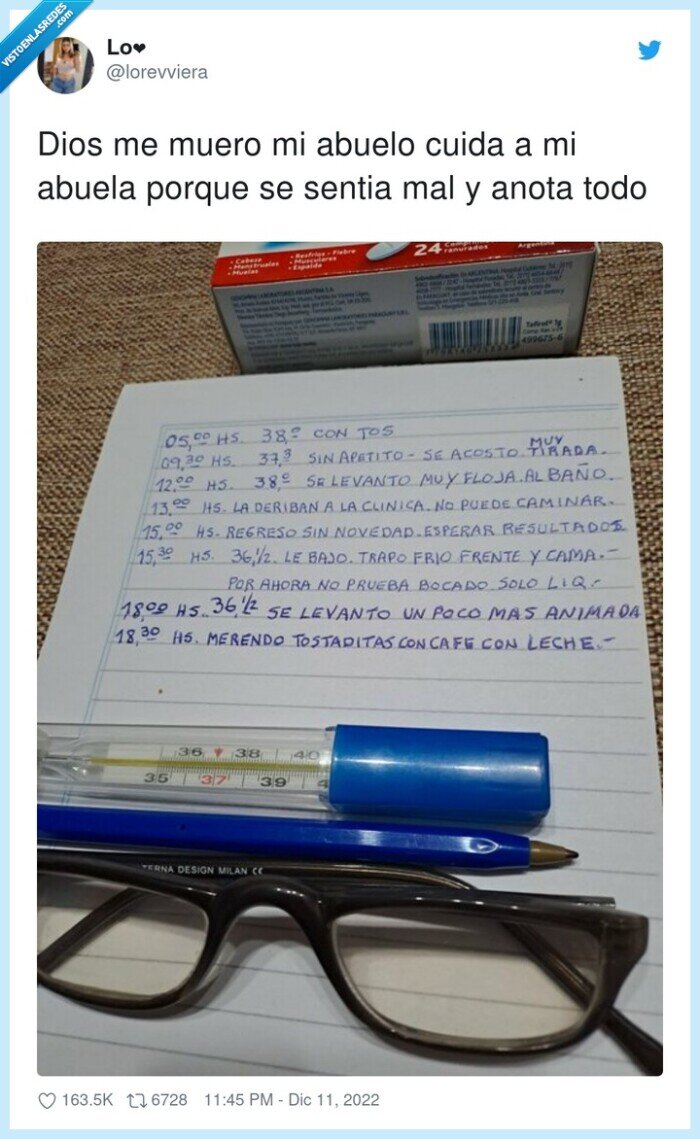 VISTOENLASREDES
.com
Lo❤
@lorevviera
Dios me muero mi abuelo cuida a mi
abuela porque se sentia mal y anota todo
• Cabeza
• Menstruales
• Muelas
• Resfríos - Fiebre
• Musculares
• Espalda
24 Comprimidos
ranurados
Argentina
GENOMMA LABORATORIES ARGENTINA S.A.
Tafirol® 1g
499675-6
05,00 HS. 38,º CON TOS
09,30 HS. 37,3 SIN APETITO - SE ACOSTO MUY TIRADA.
12,00 HS. 38,º SE LEVANTO MUY FLOJA. AL BAÑO.
13,00 HS. LA DERIBAN A LA CLINICA. NO PUEDE CAMINAR.
15,00 HS. REGRESO SIN NOVEDAD. ESPERAR RESULTADOS
15,30 HS. 36,1/2. LE BAJO. TRAPO FRIO FRENTE Y CAMA.-
POR AHORA NO PRUEBA BOCADO SOLO LIQ.-
18,00 HS. 36,1/2 SE LEVANTO UN POCO MAS ANIMADA
18,30 HS. MERENDO TOSTADITAS CON CAFE CON LECHE.-
36 38 40
35 37 39 4
TERNA DESIGN MILAN CE
163.5K 6728 11:45 PM - Dic 11, 2022